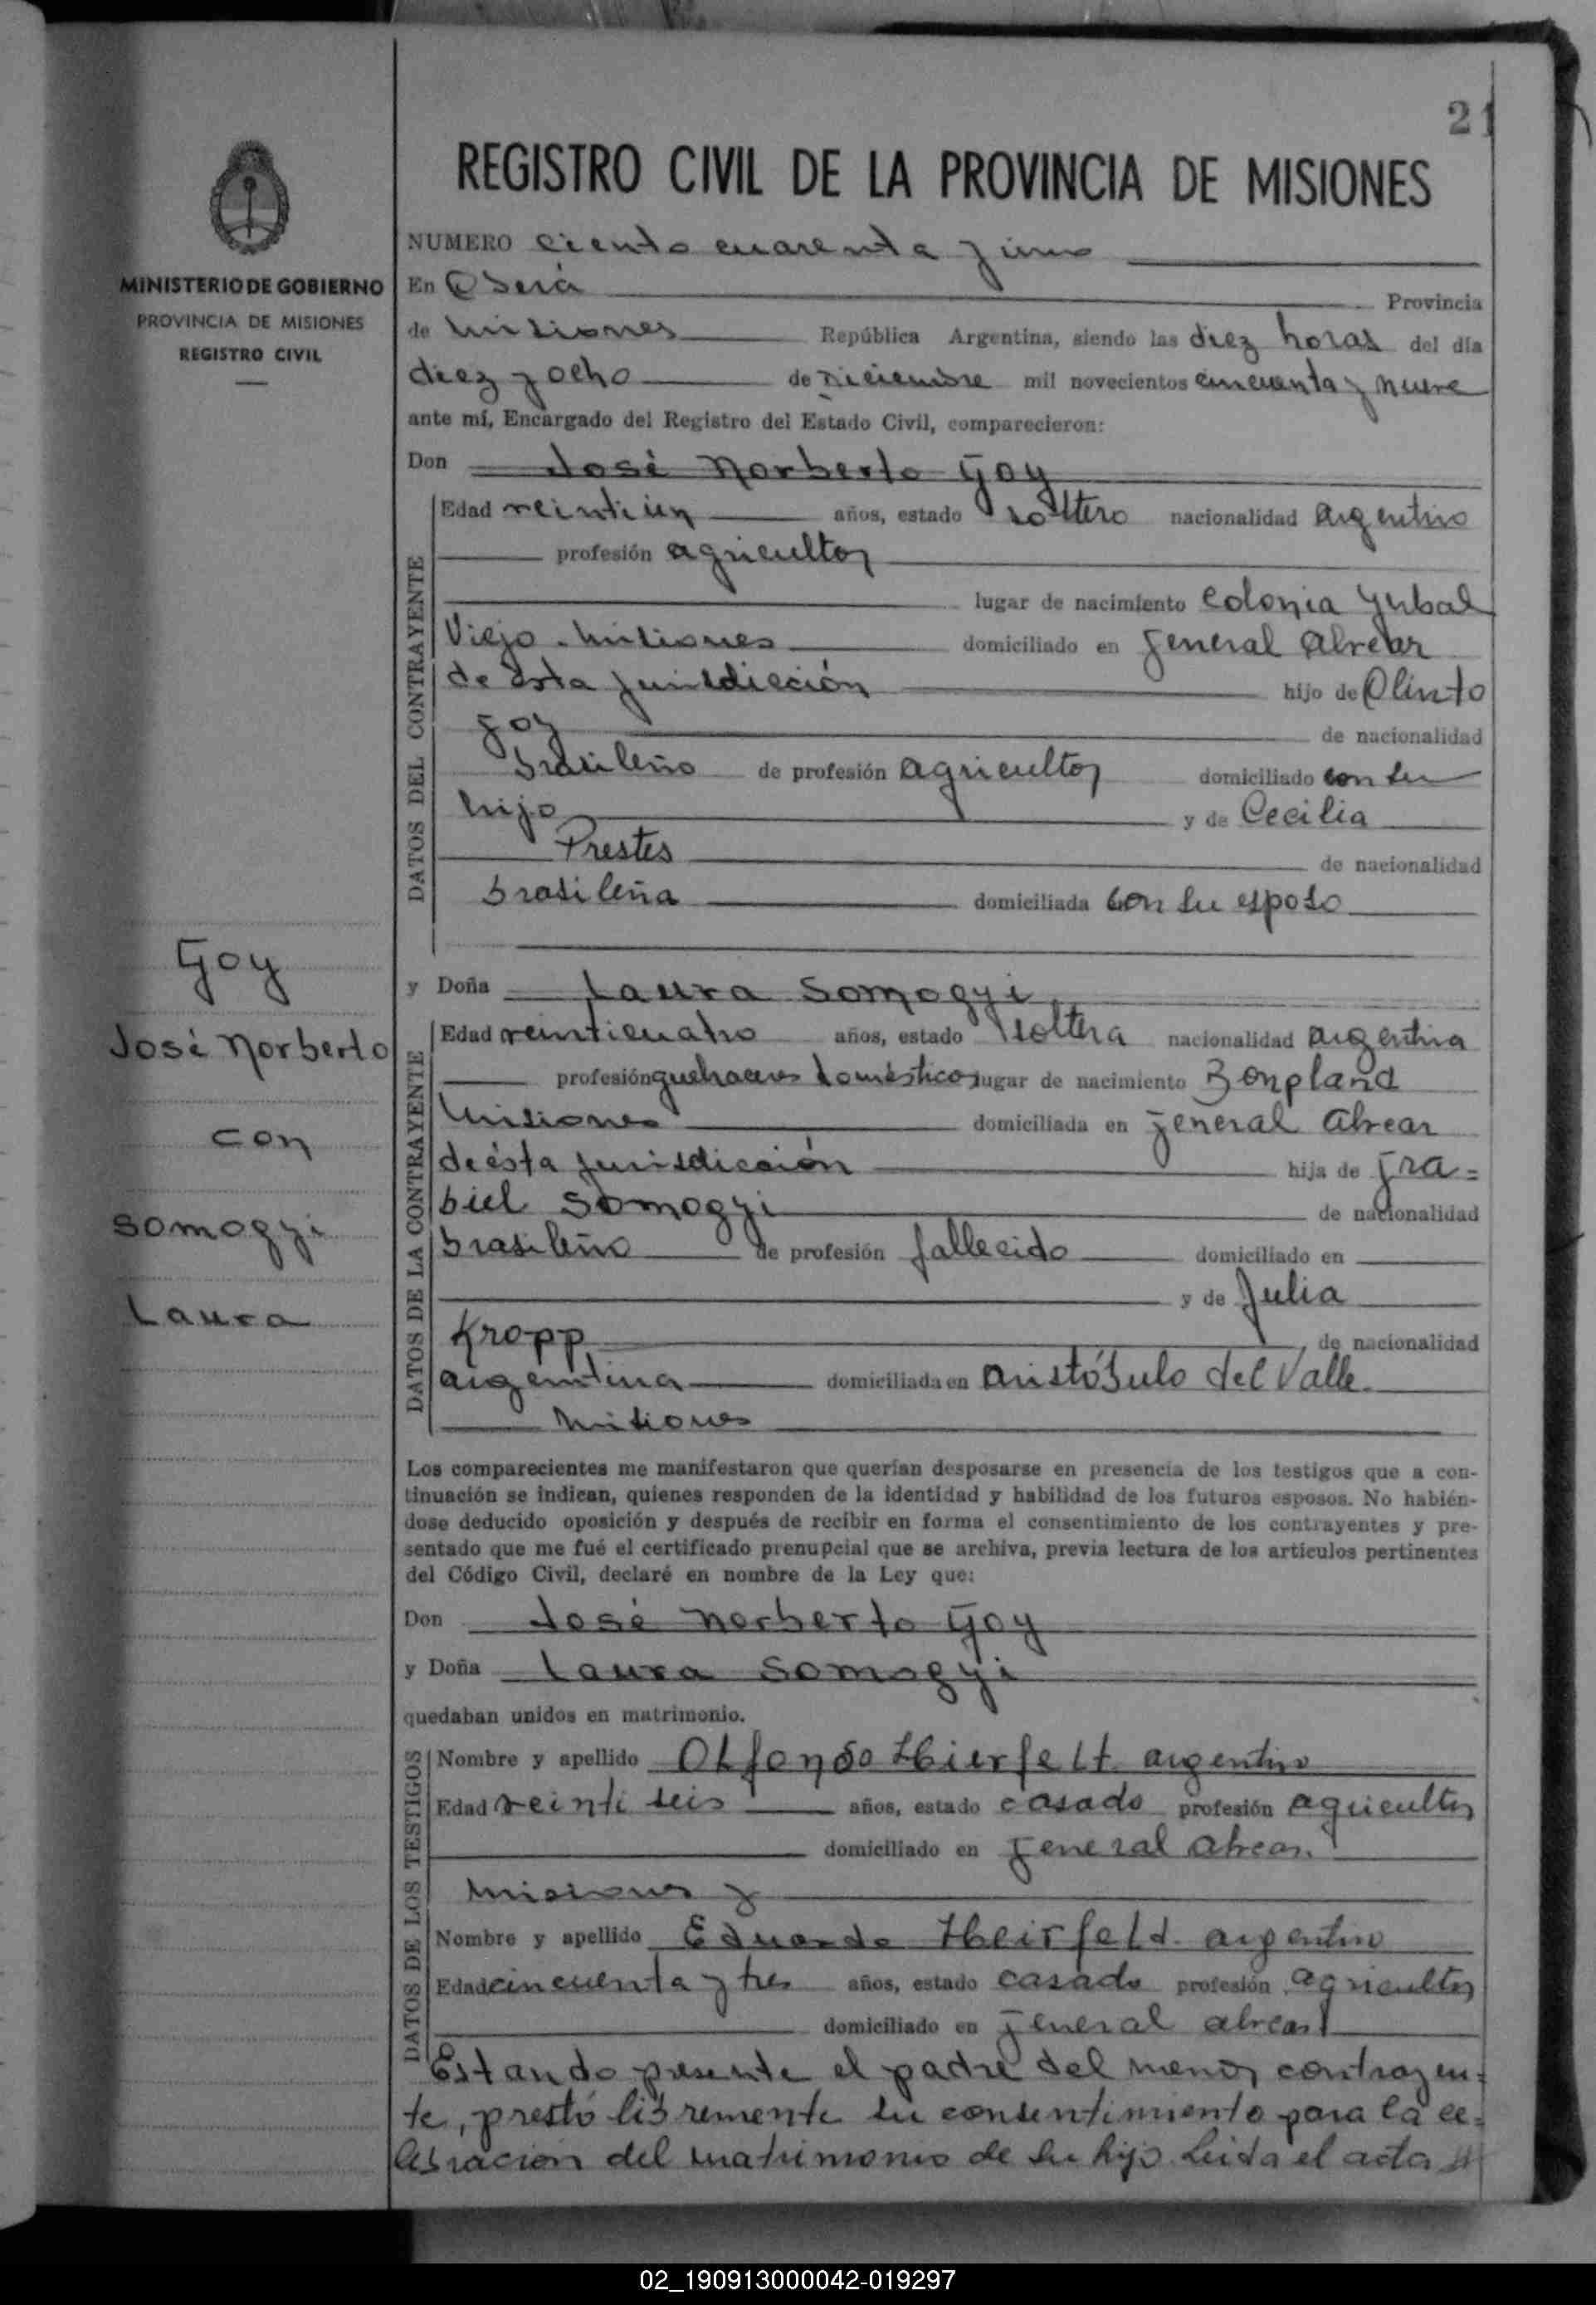 21
REGISTRO CIVIL DE LA PROVINCIA DE MISIONES
MINISTERIO DE GOBIERNO
PROVINCIA DE MISIONES
REGISTRO CIVIL
NUMERO ciento cuarenta y uno
En Oberá Provincia
de Misiones República Argentina, siendo las diez horas del día
diez y ocho de Diciembre mil novecientos cincuenta y nueve
ante mí, Encargado del Registro del Estado Civil, comparecieron:
Don José Norberto Goy
DATOS DEL CONTRAYENTE
Edad veintiún años, estado soltero nacionalidad argentino
profesión agricultor
lugar de nacimiento Colonia Yerbal
Viejo - Misiones domiciliado en General Alvear
de ésta jurisdicción hijo de Olinto
Goy de nacionalidad
brasileño de profesión agricultor domiciliado con su
hijo y de Cecilia
Prestes de nacionalidad
brasileña domiciliada con su esposo
Goy
José Norberto
con
Somogyi
Laura
y Doña Laura Somogyi
DATOS DE LA CONTRAYENTE
Edad veinticuatro años, estado soltera nacionalidad argentina
profesión quehaceres domésticos lugar de nacimiento Bonpland
Misiones domiciliada en General Alvear
de ésta jurisdicción hija de Gra=
biel Somogyi de nacionalidad
brasileño de profesión fallecido domiciliado en
y de Julia
Kropp de nacionalidad
argentina domiciliada en Aristóbulo del Valle
Misiones
Los comparecientes me manifestaron que querían desposarse en presencia de los testigos que a con-
tinuación se indican, quienes responden de la identidad y habilidad de los futuros esposos. No habién-
dose deducido oposición y después de recibir en forma el consentimiento de los contrayentes y pre-
sentado que me fué el certificado prenupcial que se archiva, previa lectura de los artículos pertinentes
del Código Civil, declaré en nombre de la Ley que:
Don José Norberto Goy
y Doña Laura Somogyi
quedaban unidos en matrimonio.
DATOS DE LOS TESTIGOS
Nombre y apellido Olfonso Hierfelt argentino
Edad veinti seis años, estado casado profesión agricultor
domiciliado en General Alvear
Misiones y
Nombre y apellido Eduardo Heirfeld argentino
Edad cincuenta y tres años, estado casado profesión agricultor
domiciliado en General Alvear
Estando presente el padre del menor contrayen=
te, prestó libremente su consentimiento para la ce=
lebración del matrimonio de su hijo. Leída el acta
02_190913000042-019297